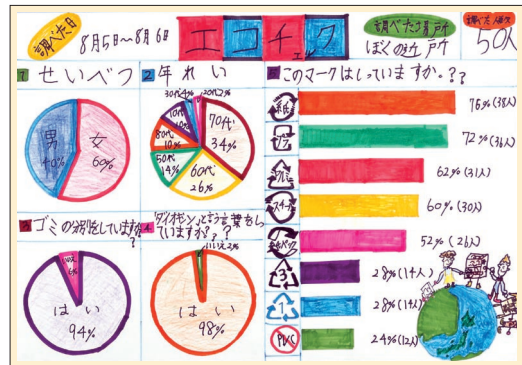 調べた日
8月5日〜8月6日
エコチェック
調べた場所
ぼくの近戸所
調べた人数
50人
1 せいべつ
男
40%
女
60%
2 年れい
70代
34%
60代
26%
50代
14%
80代
10%
30代4%
20代2%
3 ゴミの分別をしていますか?
はい
94%
いいえ
6%
4 ダイオキシンという言葉をしっていますか?
はい
98%
いいえ2%
5 このマークはしっていますか。??
紙
76%(38人)
プラ
72%(36人)
アルミ
62%(31人)
スチール
60%(30人)
紙パック
52%(26人)
3
28%(14人)
1
28%(14人)
PVC
24%(12人)